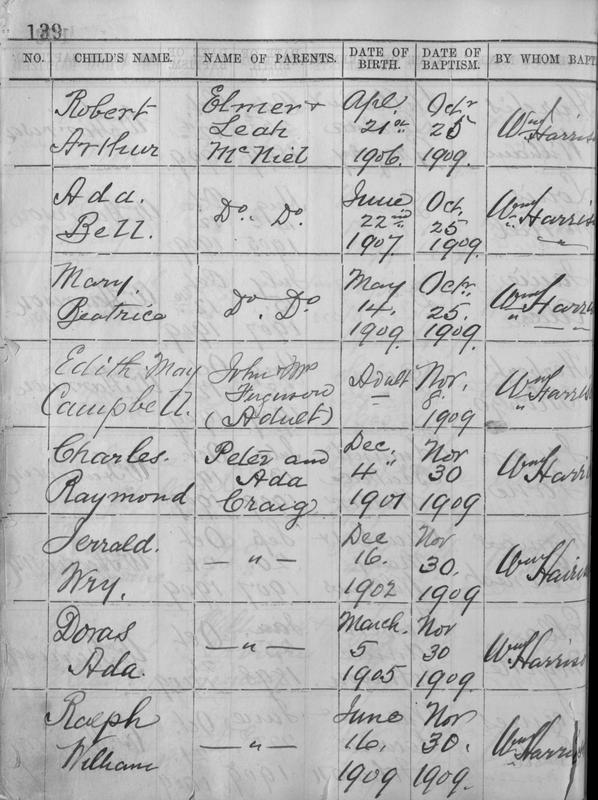 139
NO. CHILD'S NAME. NAME OF PARENTS. DATE OF BIRTH. DATE OF BAPTISM. BY WHOM BAPT
Robert Elmer + Apl Octr
Arthur Leah 21st 25 Wm Harris
McNiel 1906. 1909.
Ada. June Oct.
Bell. Do. Do. 22nd 25 Wm Harris
1907. 1909.
Mary. May Octr
Beatrice Do Do 14. 25. Wm Harris
1909. 1909.
Edith May John + Mrs Adult Nov.
Campbell. Ferguson 8. Wm Harris
(Adult) 1909
Charles. Peter and Dec. Nov
Raymond Ada 4" 30 Wm Harri
Craig 1901 1909
Jerrald. Dec Nov
Wry. — " — 16. 30. Wm Harris
1902 1909
Doras March. Nov
Ada. — " — 5 30 Wm Harris
1905 1909.
Ralph June Nov
William — " — 16. 30. Wm Harris
1909 1909.